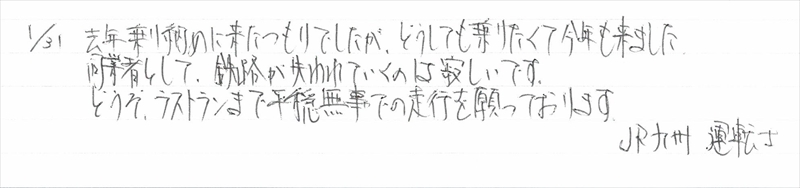 1/31 去年乗り納めに来たつもりでしたが、どうしても乗りたくて今年も来ました
同業者として、鉄路が失われていくのは寂しいです。
どうぞ、ラストランまで平穏無事での走行を願っております。
JR九州 運転士